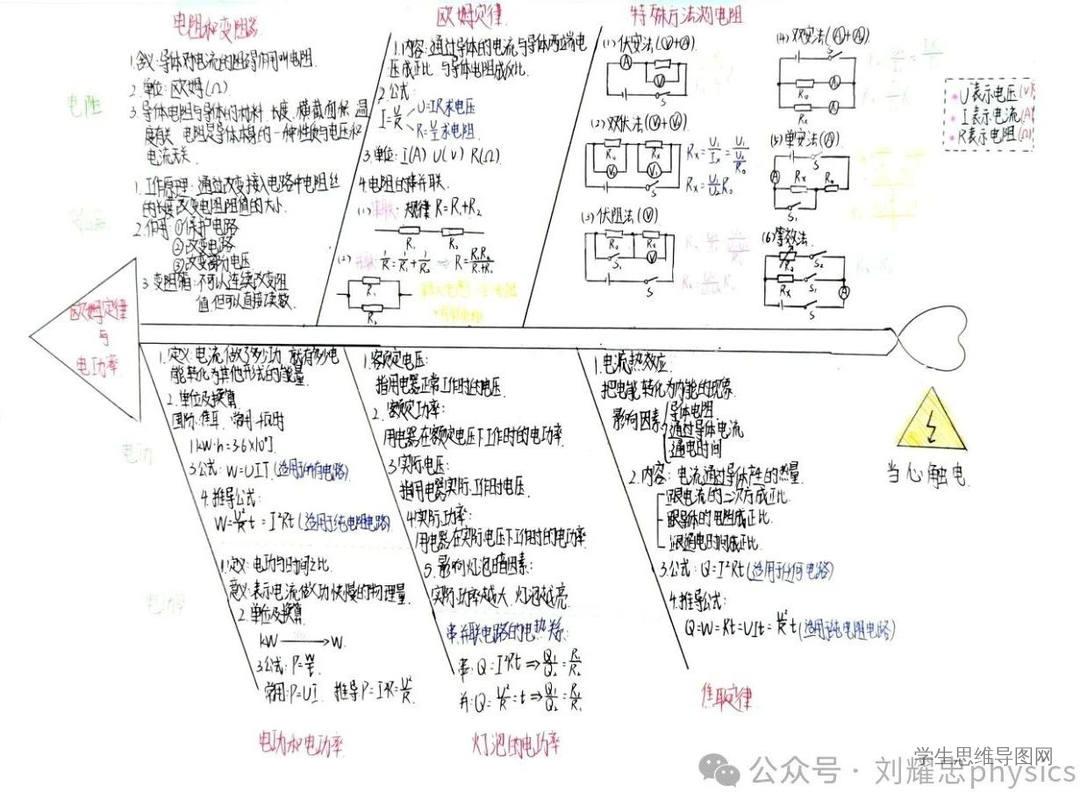 电阻和变阻器
电阻
1.含义:导体对电流的阻碍作用叫电阻.
2.单位:欧姆(Ω)
3.导体电阻与导体的材料、长度、横截面积、温
度有关 电阻是导体本身的一种性质与电压和
电流无关.
1.工作原理:通过改变接入电路中电阻丝
的长度改变电阻阻值的大小.
2.作用:①保护电路
②改变电路
③改变部分电压
3.变阻箱:不可以连续改变阻
值,但可以直接读数.
欧姆定律
1.内容:通过导体的电流与导体两端电
压成正比 与导体电阻成反比.
2.公式:
I=U/R U=IR求电压
R=U/I求电阻
3.单位:I(A) U(V) R(Ω).
4.电阻的串并联.
(1)串联:规律 R=R₁+R₂
R₁ R₂
(2)并联:1/R=1/R₁+1/R₂ ⇒ R=R₁R₂/R₁+R₂
R₁
R₂
特殊方法测电阻
(1)伏安法(Ⓥ+Ⓐ)
A
V
S
(2)双伏法(Ⓥ+Ⓥ).
Rx=U₁/Ix=U₁/U₂/R₀
Rx=U₁/U₂R₀
(3)伏阻法(Ⓥ)
S₁
S
(4)双安法(Ⓐ+Ⓐ)
S
R₀
Rx
(5)单安法(Ⓐ)
A
Rx
R₀
S₁
(6)等效法.
S₂
Rx
A
S
*U表示电压(V)
*I表示电流(A)
*R表示电阻(Ω)
欧姆定律
与
电功率
电功
1.定义:电流做了多少功 就有多少电
能转化为其他形式的能量.
2.单位及换算
国际:焦耳 常用:千瓦时
1kW·h=3.6×10⁶J
3.公式:W=UIT(适用于所有电路)
4.推导公式:
W=U²/Rt=I²Rt(适用于纯电阻电路)
电功率
1.定义:电功与时间之比.
意义:表示电流做功快慢的物理量.
2.单位及换算.
kW ⟶ W.
3.公式:P=W/t.
常用:P=UI. 推导P=I²R=U²/R.
电功和电功率
1.额定电压:
指用电器正常工作时的电压.
2.额定功率:
用电器在额定电压下工作时的电功率.
3.实际电压:
指用电器实际工作时的电压.
4.实际功率:
用电器在实际电压下工作时的电功率
5.影响灯泡暗因素:
实际功率越大,灯泡越亮.
串并联电路的电热关系:
串:Q=I²Rt⇒Q₁/Q₂=R₁/R₂
并:Q=U²/R=t⇒Q₁/Q₂=R₂/R₁
灯泡的电功率
1.电流热效应.
把电能转化为内能的现象.
影响因素 导体电阻.
通过导体电流
通电时间
2.内容:电流通过导体产生的热量
跟电流的二次方成正比.
跟导体的电阻成正比.
跟通电时间成正比.
3.公式:Q=I²Rt(适用于任何电路)
4.推导公式:
Q=W=Pt=UIt=U²/Rt(适用于纯电阻电路)
焦耳定律
当心触电.
学生思维导图网
公众号 · 刘耀忠physics